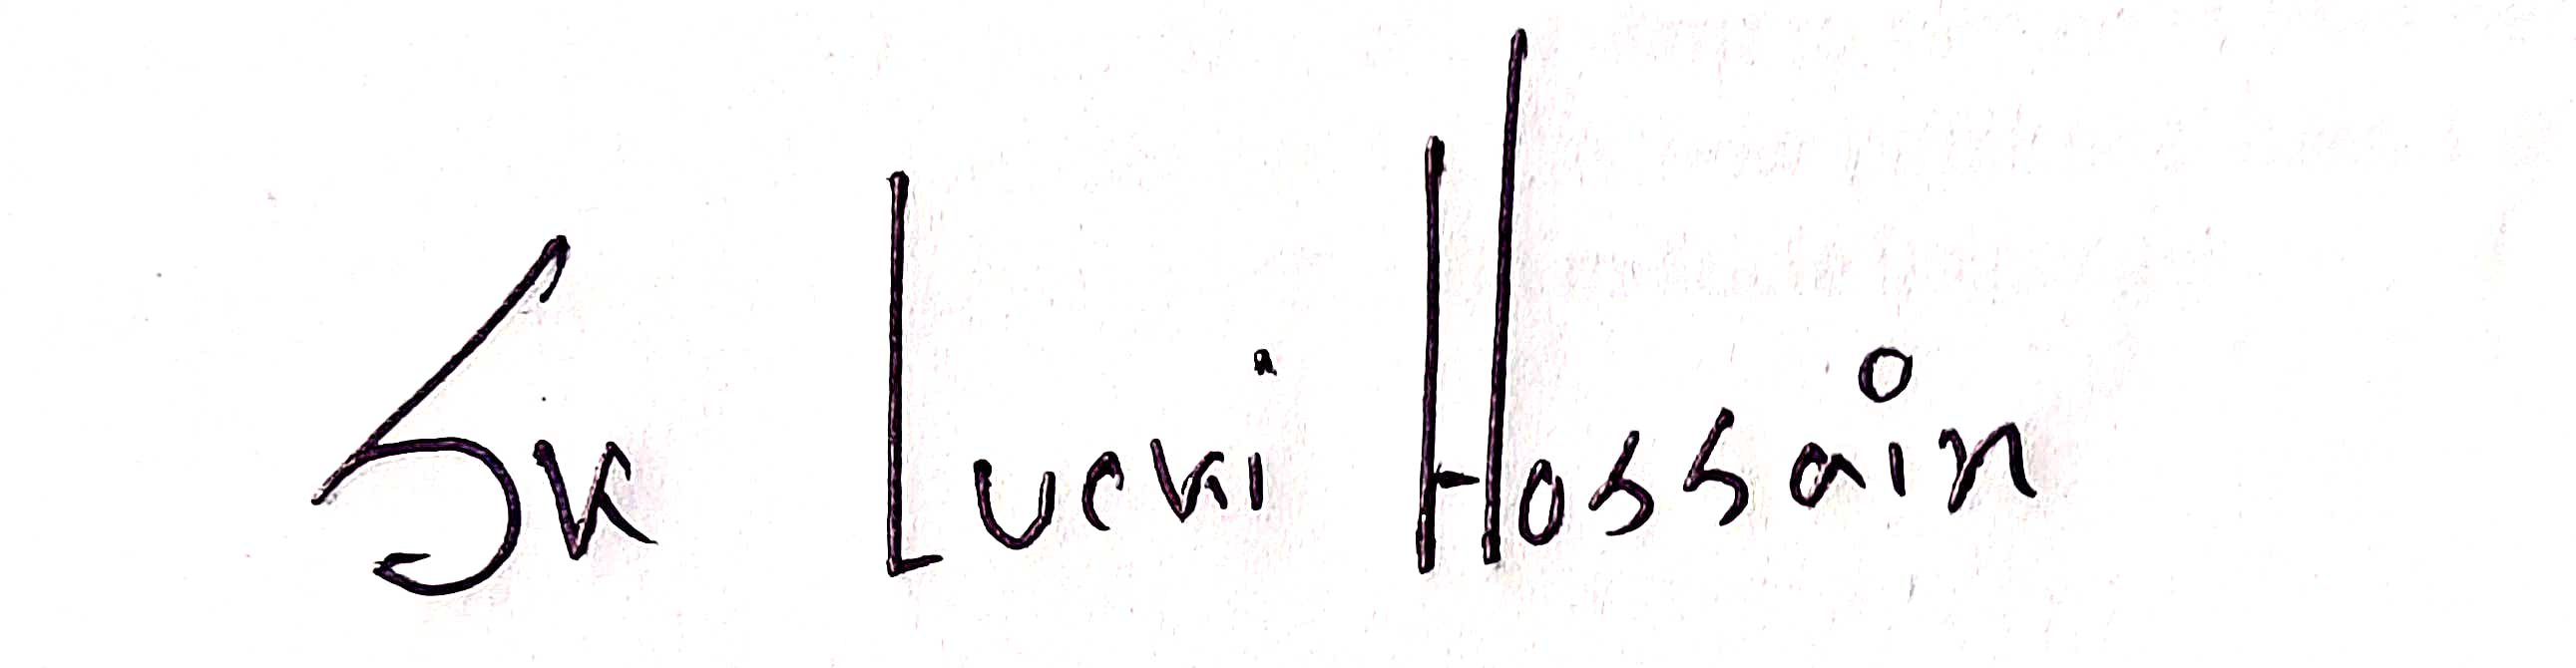 Sk Lucki Hossain